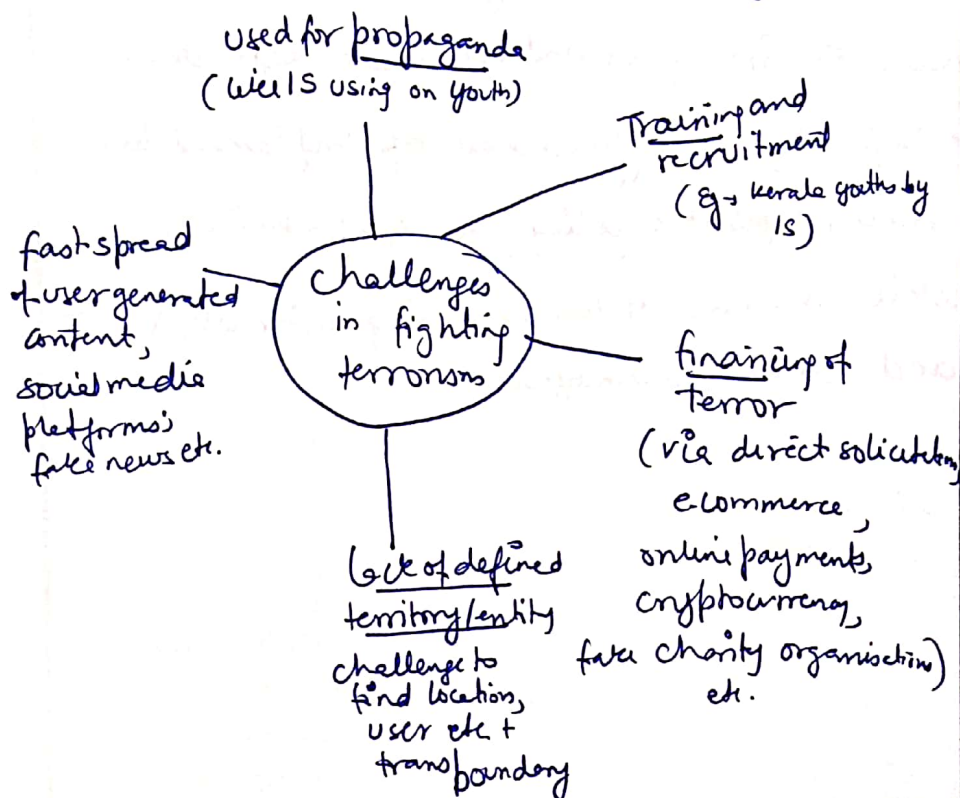 used for propaganda
(like IS using on youth)
Training and
recruitment
(Eg → Kerala youths by
IS)
fast spread
of user generated
content,
social media
platforms,
fake news etc.
Challenges
in fighting
terrorism
financing of
terror
(via direct solicitation,
e-commerce,
online payments,
cryptocurrency,
fake charity organisations)
etc.
lack of defined
territory/entity
challenge to
find location,
user etc +
transboundary